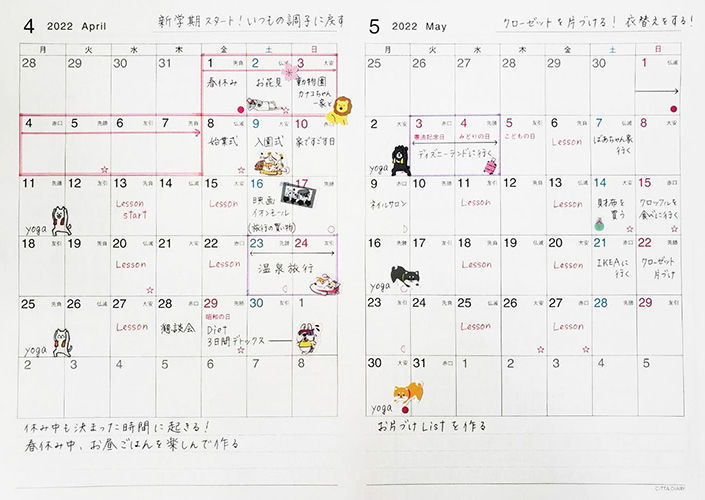 4 2022 April 新学期スタート!いつもの調子に戻す
月 火 水 木 金 土 日
28 29 30 31 1 先負 2 仏滅 3 大安
春休み お花見 動物園
カナコちゃん
一家と
4 赤口 5 先勝 6 友引 7 先負 8 仏滅 9 大安 10 赤口
始業式 入園式 家ですごす日
11 先勝 12 友引 13 先負 14 仏滅 15 大安 16 赤口 17 先勝
yoga Lesson start Lesson 映画
イオンモール
(旅行の買い物)
18 友引 19 先負 20 仏滅 21 大安 22 赤口 23 先勝 24 友引
Lesson Lesson 温泉旅行
25 先負 26 仏滅 27 大安 28 赤口 29 先勝 30 友引 1
昭和の日
yoga Lesson 懇談会 Diet
3日間デトックス
2 3 4 5 6 7 8
休み中も決まった時間に起きる!
春休み中、お昼ごはんを楽しんで作る
5 2022 May クローゼットを片づける! 衣替えをする!
月 火 水 木 金 土 日
25 26 27 28 29 30 1 仏滅
2 大安 3 赤口 4 先勝 5 友引 6 先負 7 仏滅 8 大安
憲法記念日 みどりの日 こどもの日
yoga ディズニーランドに行く Lesson ばあちゃん家
行く
9 赤口 10 先勝 11 友引 12 先負 13 仏滅 14 大安 15 赤口
ネイルサロン Lesson Lesson 財布を
買う クロッフルを
食べに行く
16 先勝 17 友引 18 先負 19 仏滅 20 大安 21 赤口 22 先勝
yoga Lesson Lesson IKEAに
行く クローゼット
片づけ
23 友引 24 先負 25 仏滅 26 大安 27 赤口 28 先勝 29 友引
Lesson Lesson
30 大安 31 赤口 1 2 3 4 5
yoga
お片づけListを作る
CITTA DIARY